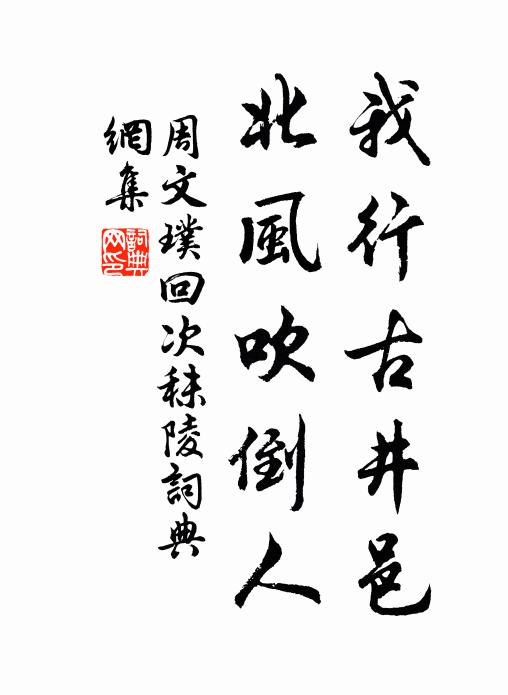 我行古井邑
北風吹倒人
周文璞回次秣陵詞典
網集
詞典網印